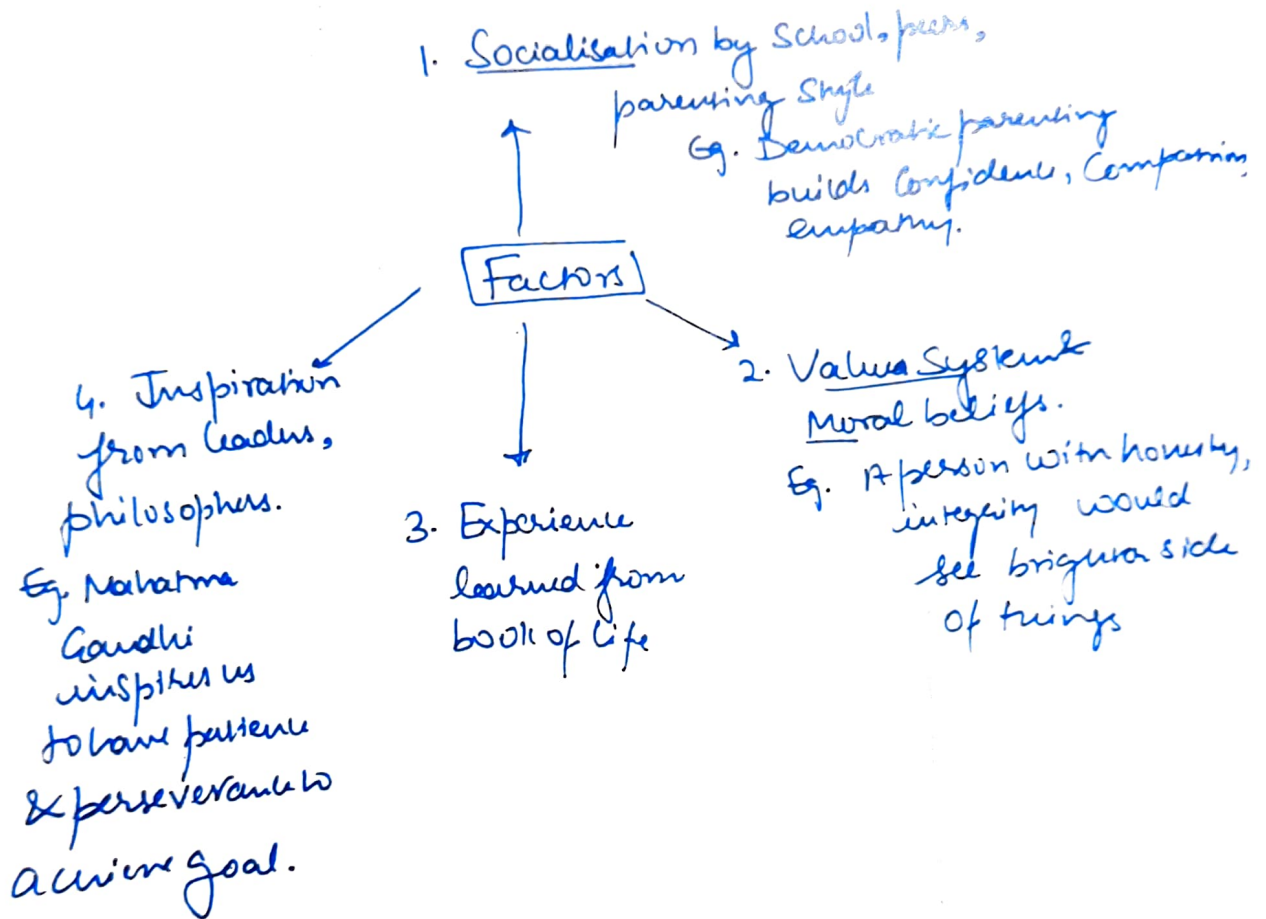 1. Socialisation by School, peers,
parenting Style
Eg. Democratic parenting
builds Confidence, Compassion,
empathy.
Factors
2. Value System &
Moral beliefs.
Eg. A person with honesty,
integrity would
see brighter side
of things
3. Experience
learned from
book of life
4. Inspiration
from leaders,
philosophers.
Eg. Mahatma
Gandhi
inspires us
to have patience
& perseverance to
achieve goal.